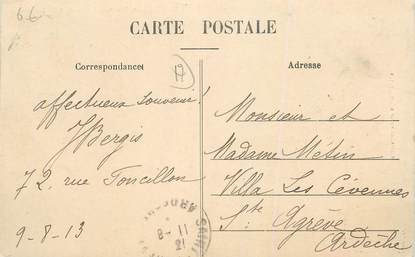 66
CARTE POSTALE
Correspondance
Adresse
19
affectueux souvenir!
JBergis
72, rue Foncillon
9-8-13
Monsieur et
Madame Métin
Villa Les Cévennes
Ste Agrève
Ardèche
SAINT
ARDÈCHE
8-11